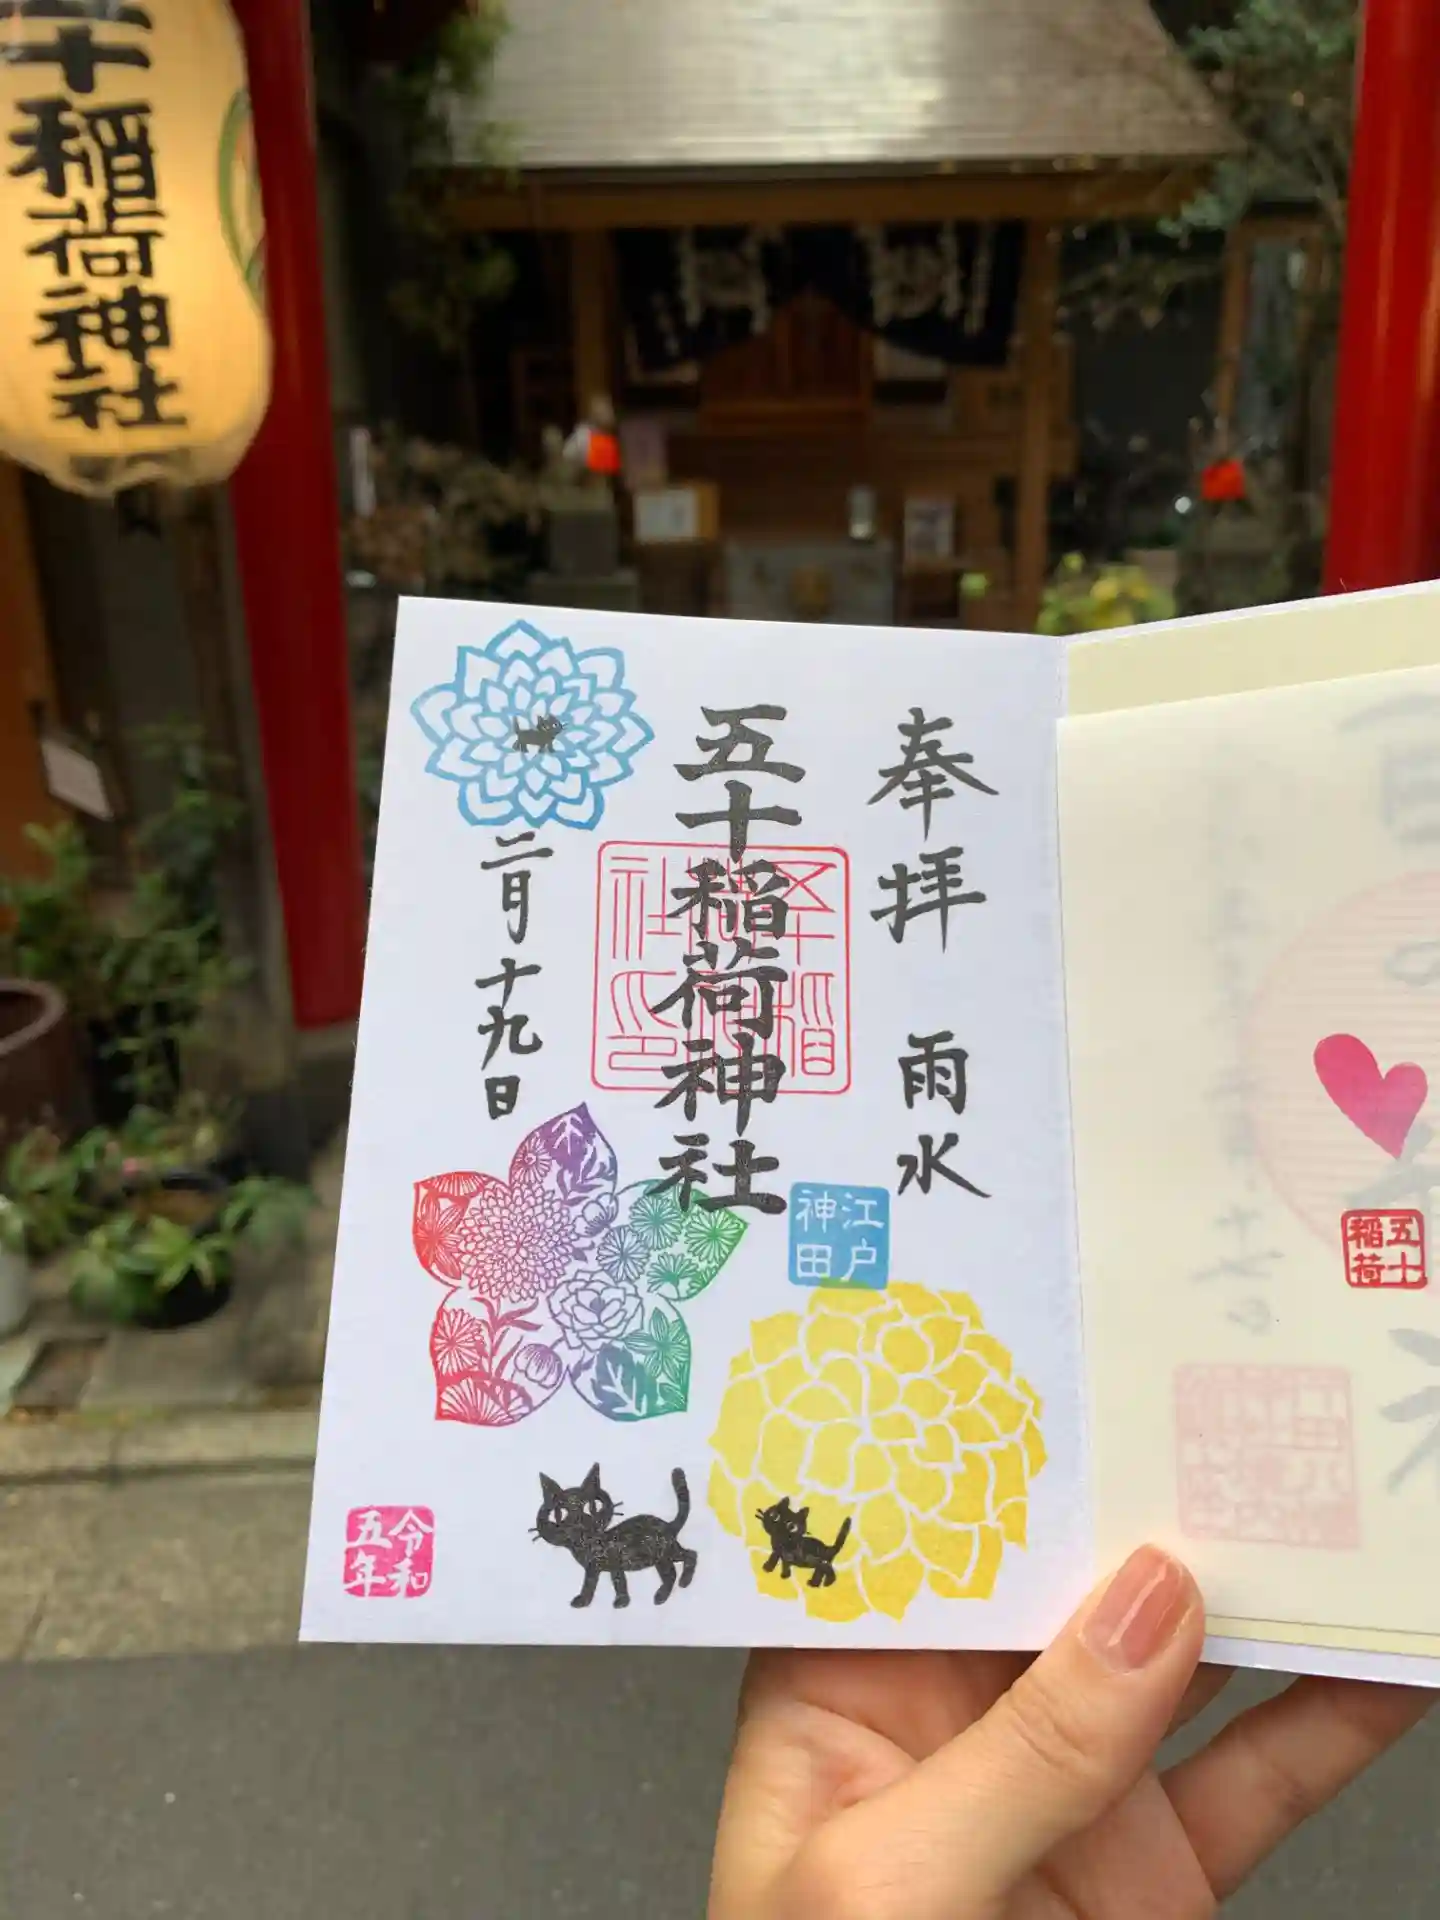 十稲荷神社
奉拝 雨水
五十稲荷神社
二月十九日
江戸
神田
令和
五年
五十
稲荷